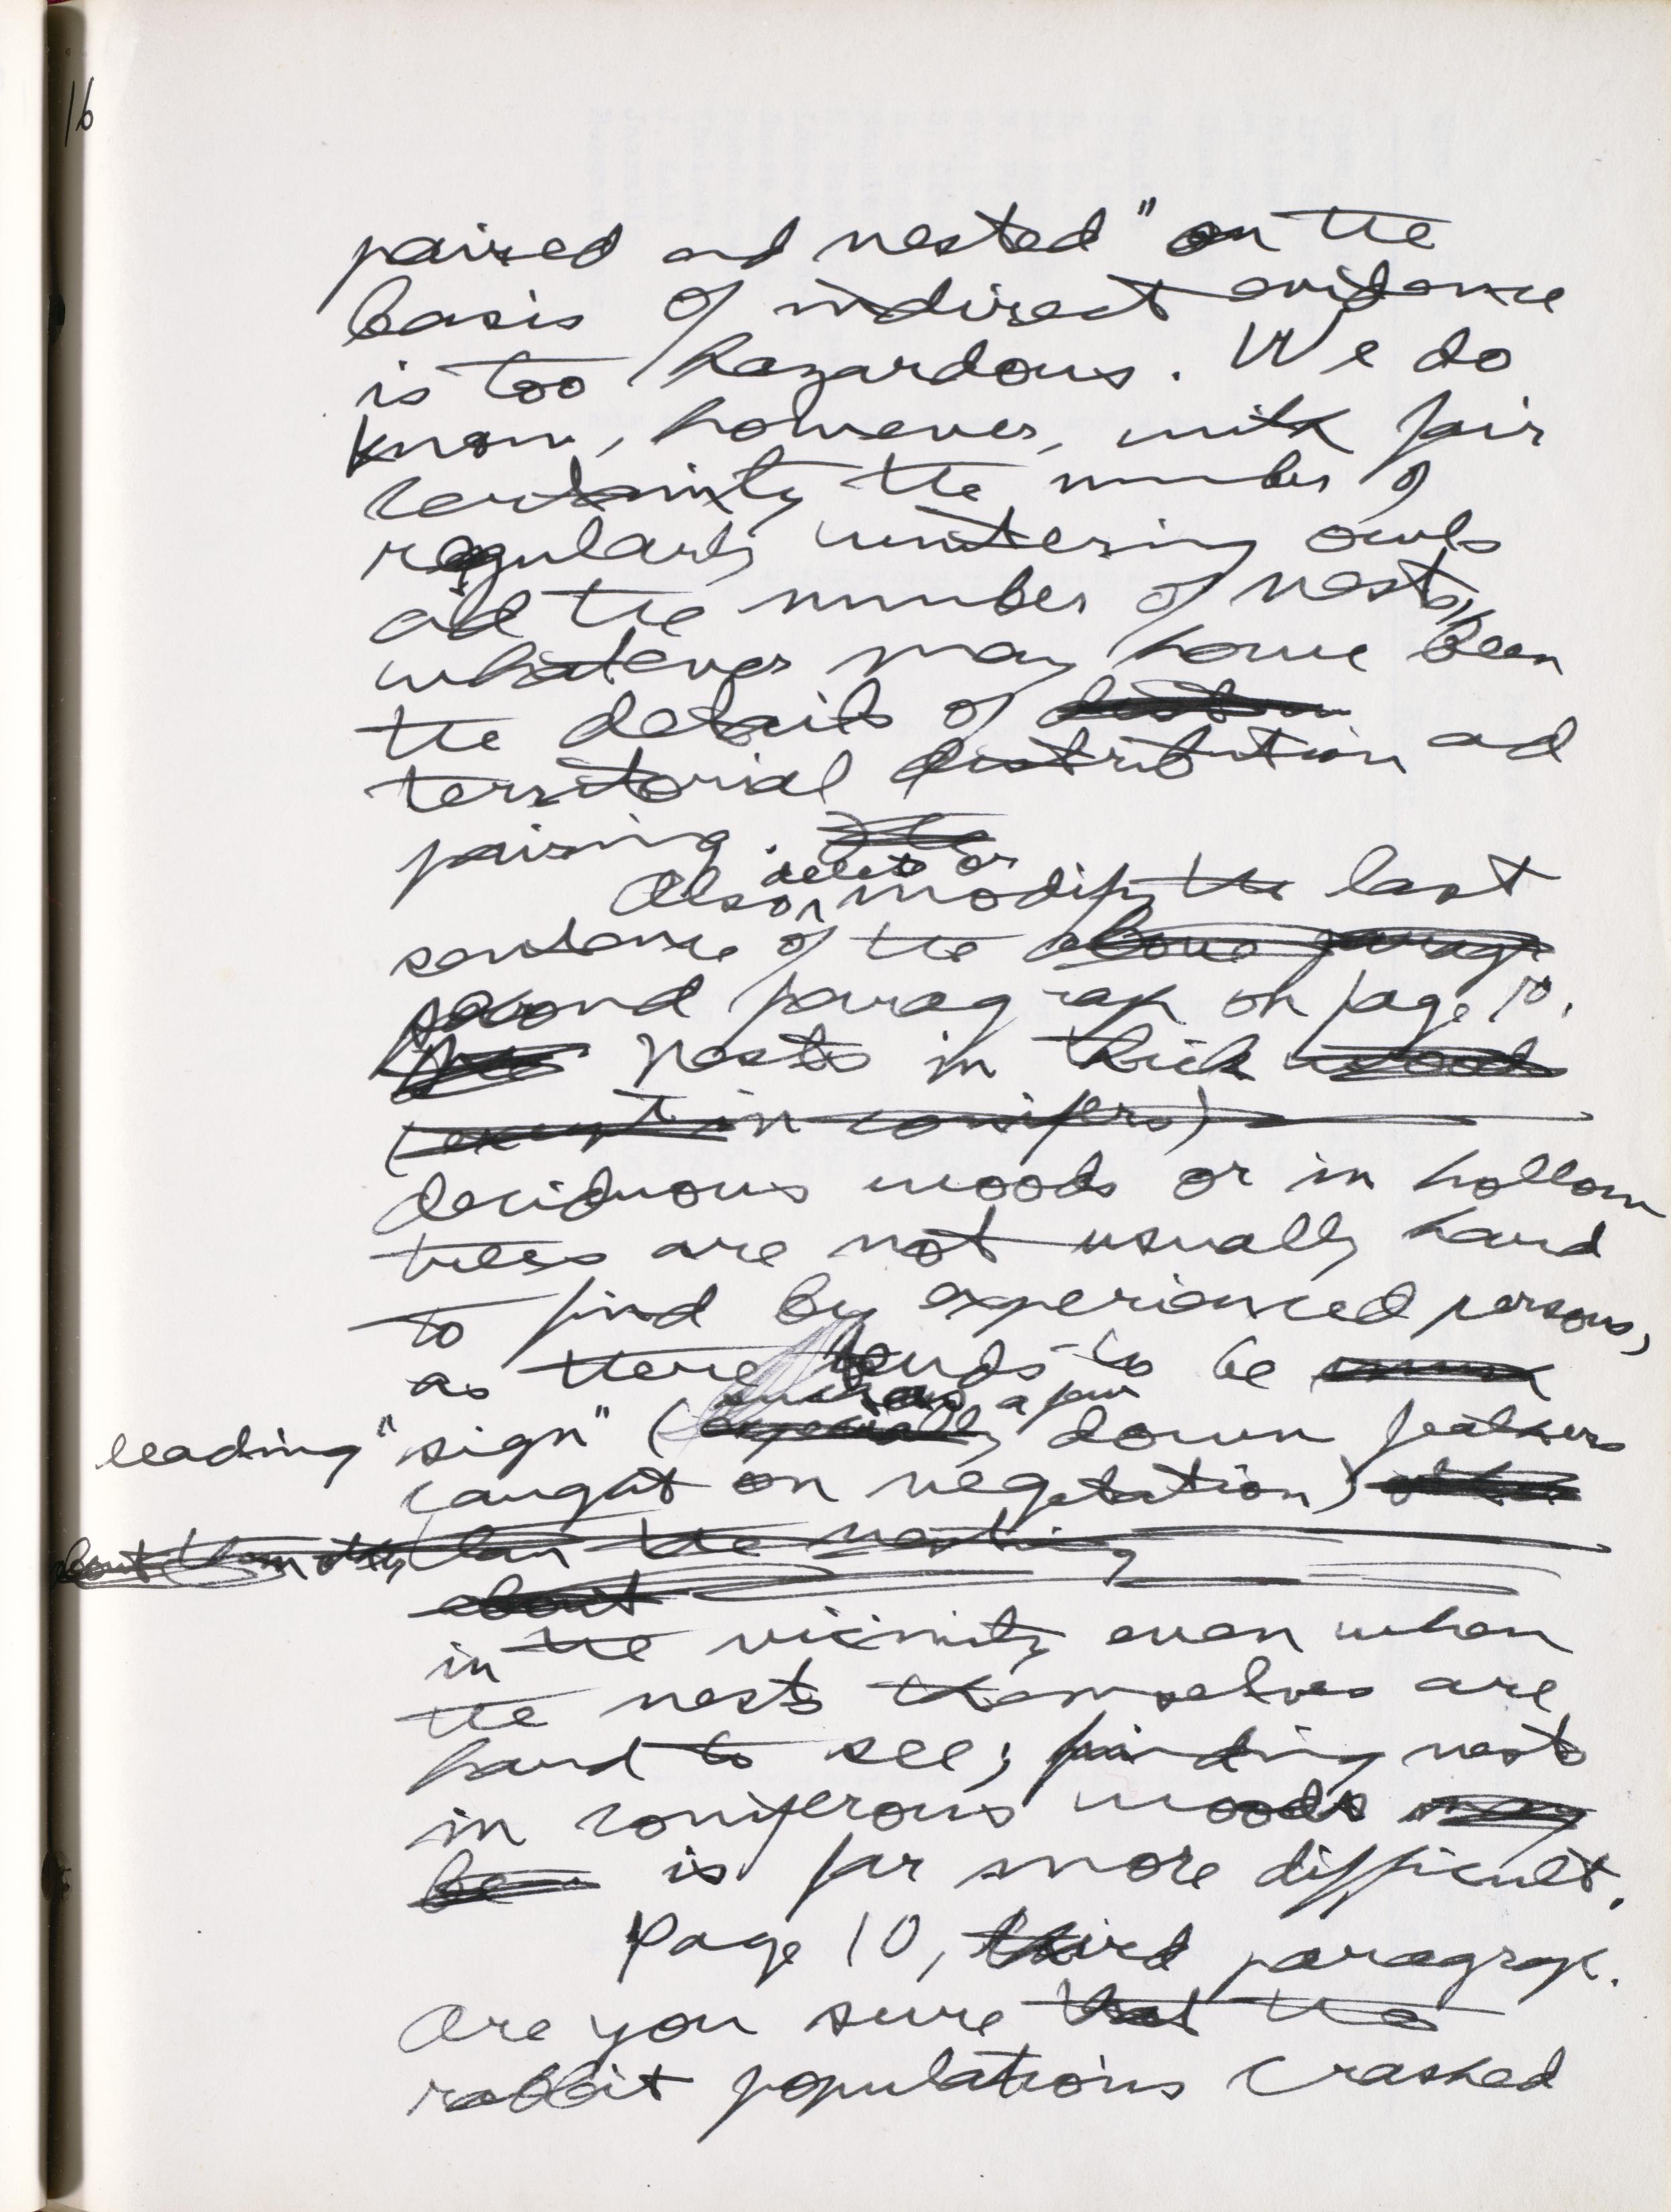 16
paired and nested" on the
basis of indirect evidence
is too hazardous. We do
know, however, with fair
certainty the number of
regularly wintering owls
and the number of nests,
whatever may have been
the details of distribu
territorial distribution and
pairing.
delete or
Also, modify the last
sentence of the above paragr
second paragraph on page 10.
The Nests in thick woods
(except in conifers)
deciduous woods or in hollow
trees are not usually hard
to find by experienced persons,
as there tends to be
such as a few
leading "sign" (especially down feathers
caught on vegetation)
about them other than the nesting
about
in the vicinity even when
the nests themselves are
hard to see; finding nests
in coniferous woods may
be is far more difficult.
Page 10, third paragraph.
Are you sure that the
rabbit populations crashed